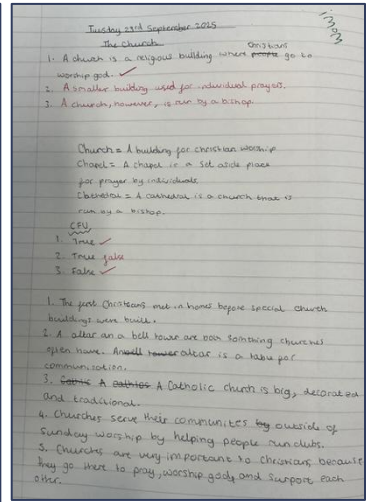 Tuesday 23rd September 2025
The Church
Christians
1. A church is a religious building where people go to
worship god.
2. A smaller building used for individual prayers.
3. A church, however, is run by a bishop.
Church = A building for christian worship
Chapel = A chapel is a set aside place
for prayer by individuals
Cathedral = A cathedral is a church that is
run by a bishop.
CFU
1. True
2. True false
3. False
1. The first Christians met in homes before special church
buildings were built.
2. A altar an a bell tower are both somthing churches
often have. An altar is a table for
communication.
3. A Catholic church is big, decorated
and traditional.
4. Churches serve their communites by outside of
Sunday worship by helping people run clubs.
5. Churches are very important to christians because
they go there to pray, worship god, and support each
other.